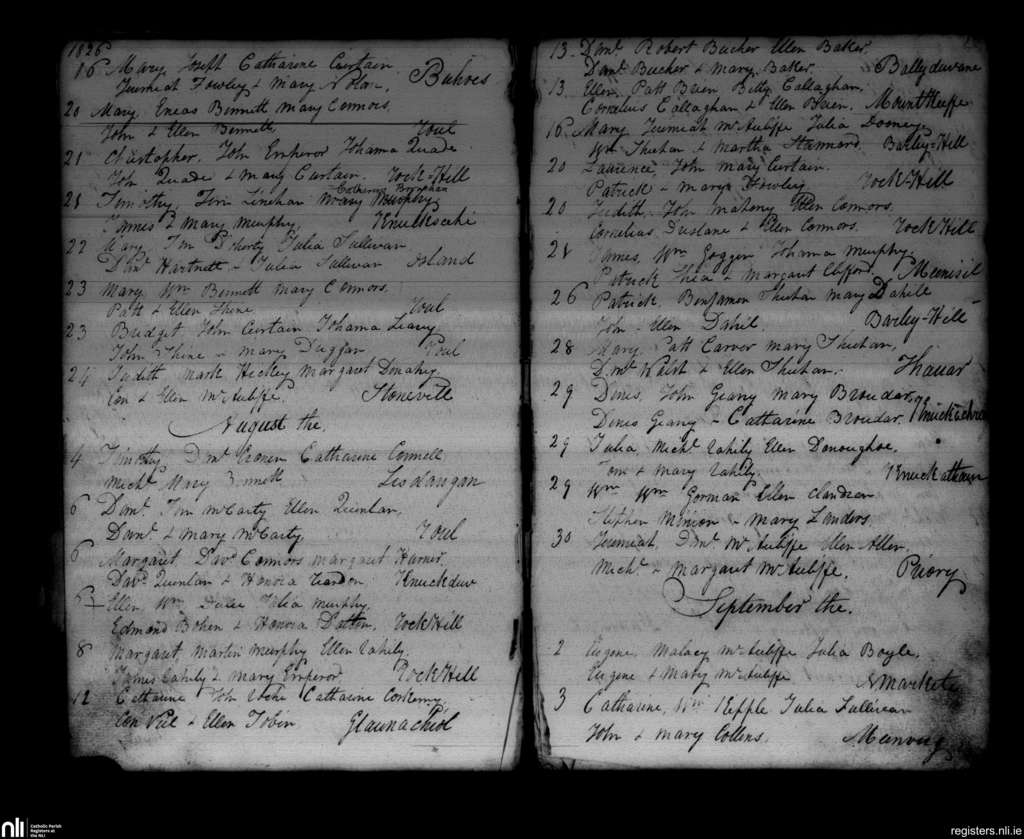 1826
16 Mary, Joseph Catharine Curtain
Jeremiat Fowley & Mary Nolan, Buhoes
20 Mary, Eneas Bennett Mary Connors,
John & Ellen Bennett, Toul
21 Christopher, John Emperor Johama Quade
John Quade & Mary Curtain. Rock-Hill
21 Timothy, Linehan Catherine Murphy
James & Mary Murphy,
22 Mary, Tim Doherty Julia Sullivan
Danl Hartnett & Julia Sullivan Island
23 Mary, Wm Bennett Mary Connors.
Patt & Ellen Shine Toul
23 Bridget, John Curtain Johama Leavy
John Shine & Mary Duggan Toul
24 Judith, Mark Hickey Margaret Donahy.
Con & Ellen McAuliffe. Stonevill
August the.
4 Timothy, Danl Catharine Connell
Michl Mary Bennett Lisdangan
6 Danl, Tim McCarty Ellen Quinlan,
Danl & Mary McCarty. Toul
6 Margaret, Davd Connors Margaret
Davd Quinlan & Honora Knuckduv
Ellen, Wm Julia Murphy.
Edmond Bohen & Honora Dalton, Rock Hill
8 Margaret, Martin Murphy Ellen Cahily.
James Cahily & Mary Emperor. Rock Hill
12 Catharine, John Roche Catharine Corkerry
Con Neil & Ellen Tobin Glaunachiol
13. Danl Robert Bucher Ellen Baker.
Danl Bucher & Mary Baker. Ballyduvane
13 Ellen, Patt Brien Betty Callaghan.
Cornelius Callaghan & Ellen Brien. Mount
16 Mary, Jeremiat McAuliffe Julia
Wm Sheehan & Martha Stannard. Barley-Hill
20 Laurence, John Mary Curtain.
Patrick & Mary Fowley Rock-Hill
20 Judith, John Mahony Ellen Connors.
Cornelius & Ellen Connors. Rock Hill
21 James, Wm Goggin Johama Murphy
Patrick Shea & Margaret Clifford.
26 Patrick, Benjamen Sheehan Mary Dahill
John & Ellen Dahil. Barley-Hill
28 Mary, Patt Carver Mary Sheehan,
& Ellen Sheehan.
29 Denis, John Geany Mary Broudar,
Denis Geany & Catharine Broudar.
29 Julia, Michl Cahily Ellen Donoughoe,
Tom & Mary Cahily.
29 Wm Wm Gorman Ellen
Stephen & Mary Landers,
30 Jeremiat, Danl McAuliffe Ellen Allen.
Michl & Margaret McAuliffe, Priory
September the.
2 Eugene, Malacy McAuliffe Julia Boyle,
Eugene & Mary McAuliffe NMarket
3 Catharine, Wm Kepple Julia Sullivan
John & Mary Collens.
nli Catholic Parish
Registers at
the NLI
registers.nli.ie